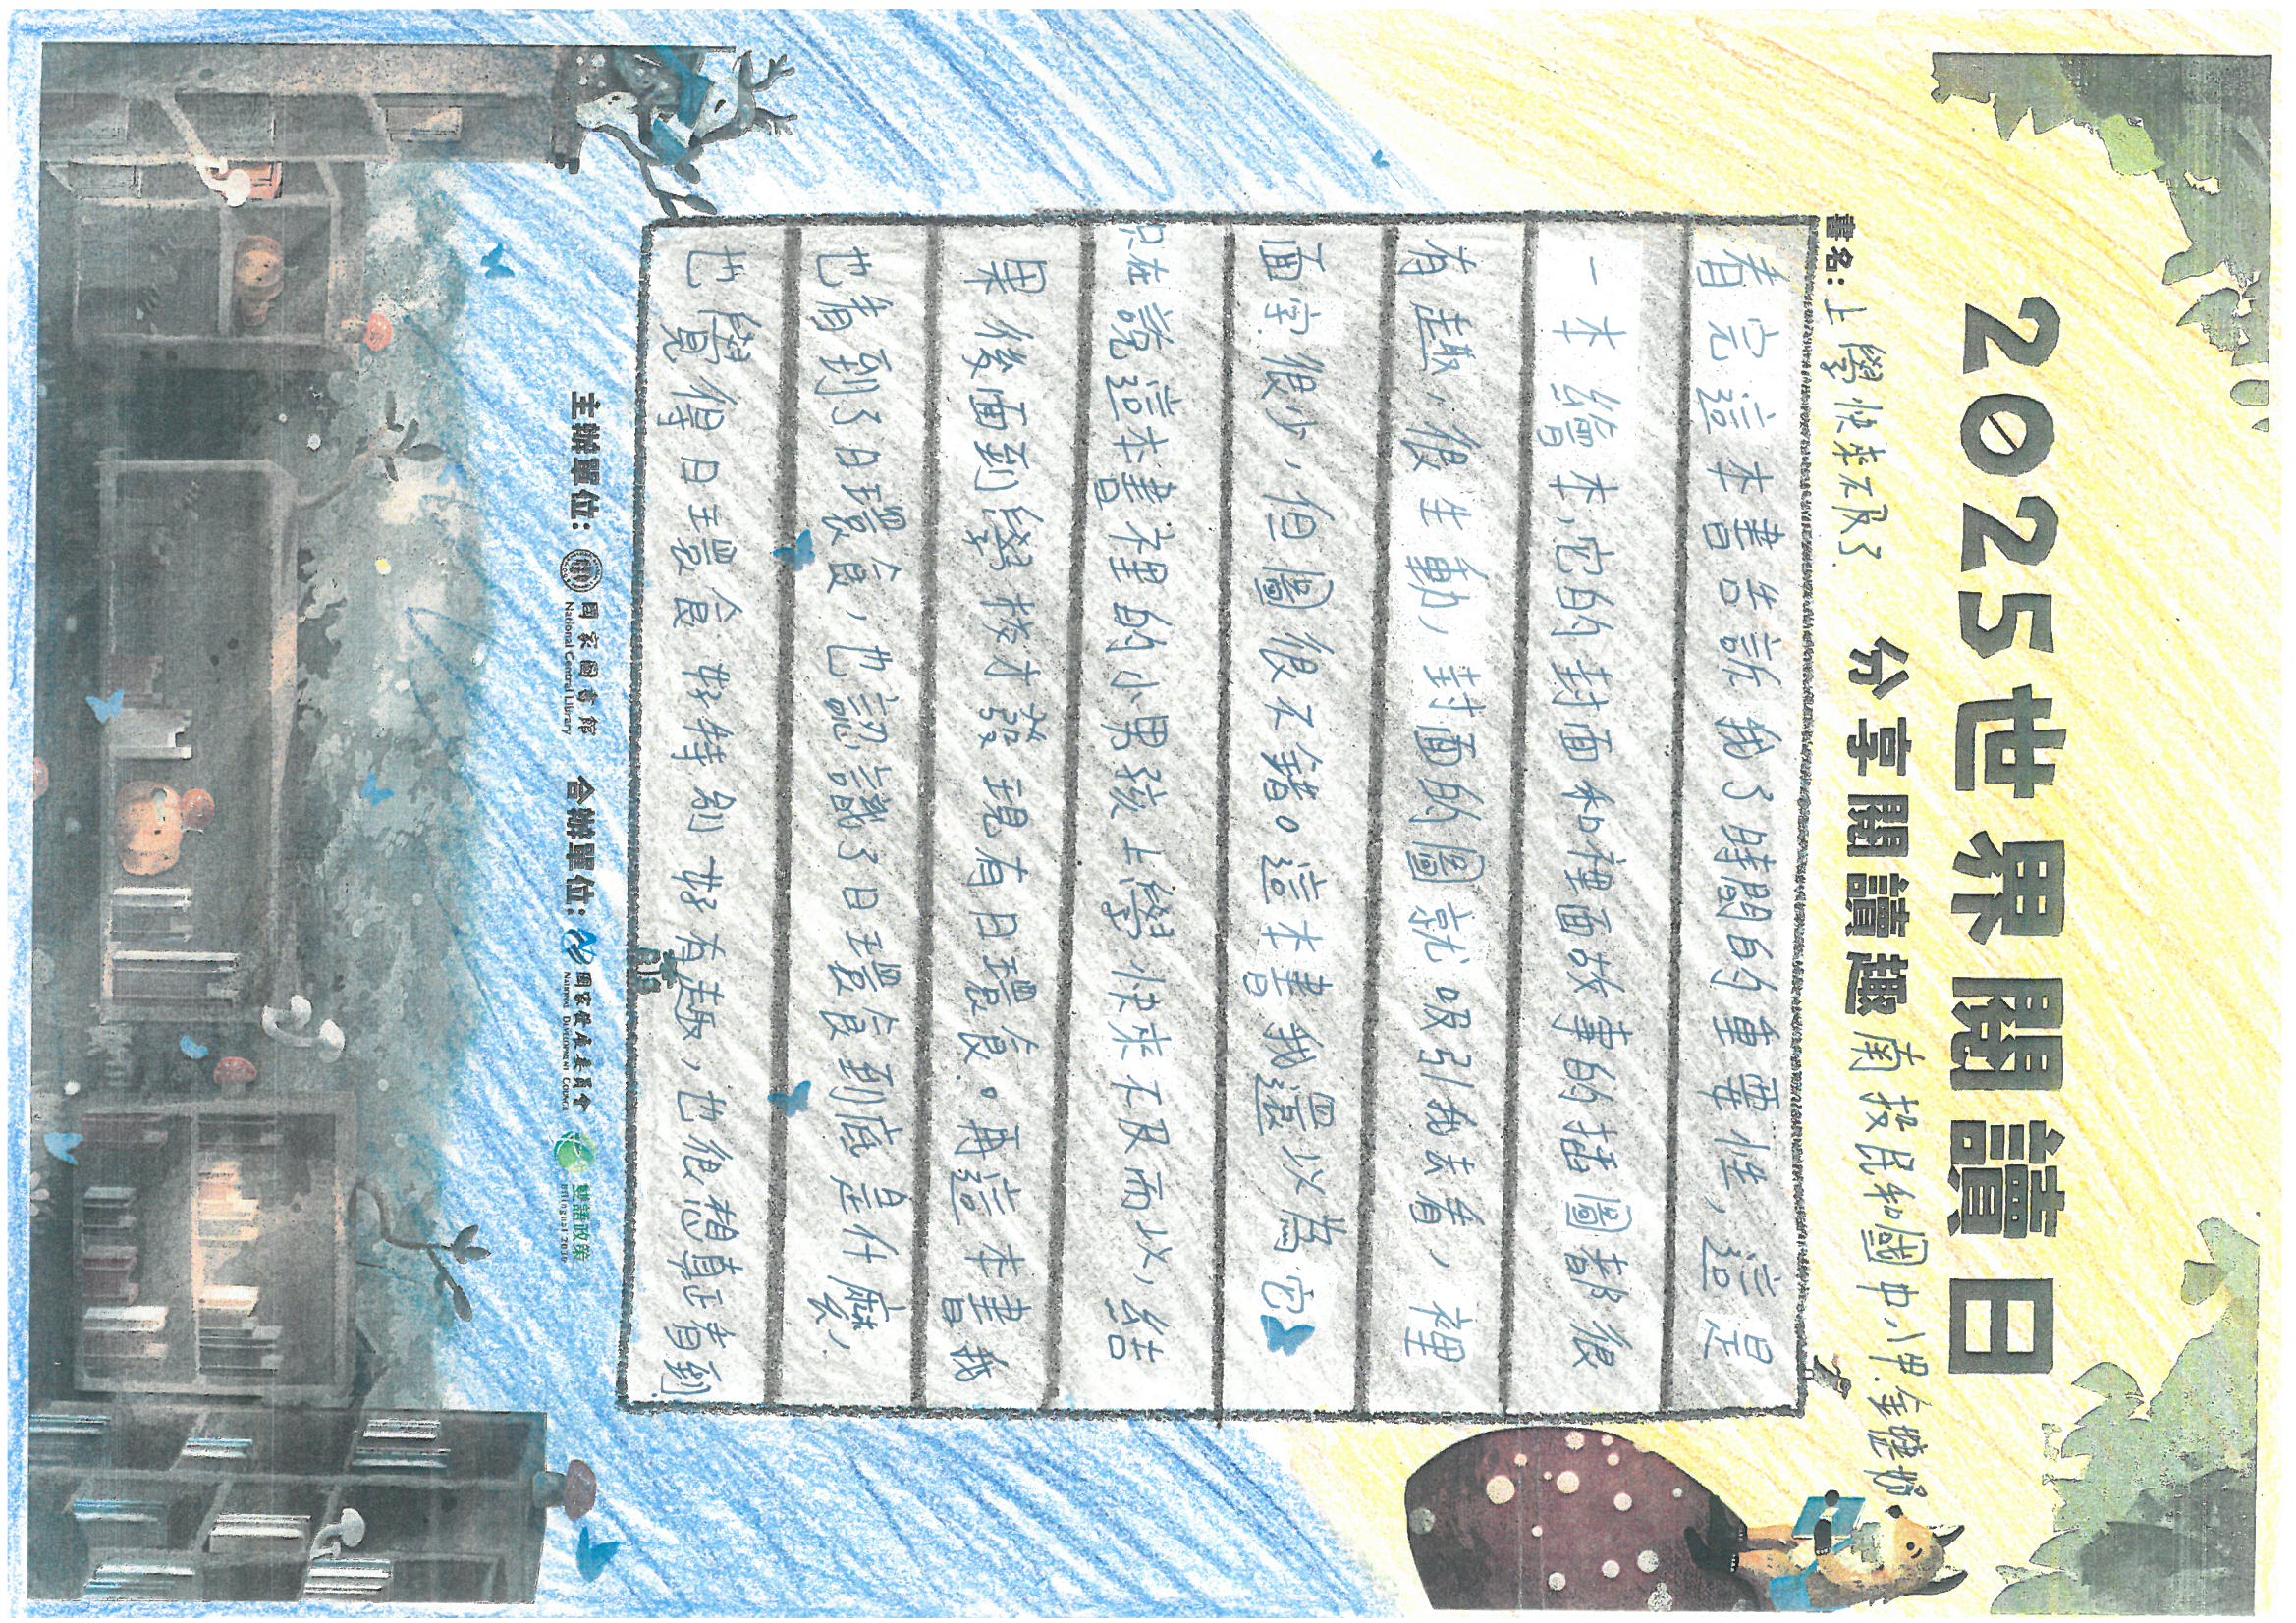 2025世界閱讀日
分享閱讀趣
南投民和國中八甲 金
書名:上學快來不及了.
看完這本書告訴我了時間的重要性,這是
一本繪本,它的封面和裡面故事的插圖都很
有趣,很生動,封面的圖就吸引我去看,裡
面字很少,但圖很不錯。這本書我還以為它
只在說這本書裡的小男孩上學快來不及而以,結
果後面到學校才發現有日環食。再這本書我
也看到了日環食,也認識了日環食到底是什麼,
也覺得日環食好特別好有趣,也很想真正看到.
主辦單位: 國家圖書館 National Central Library 合辦單位: 國家發展委員會 NATIONAL DEVELOPMENT COUNCIL 雙語政策 Bilingual 2030